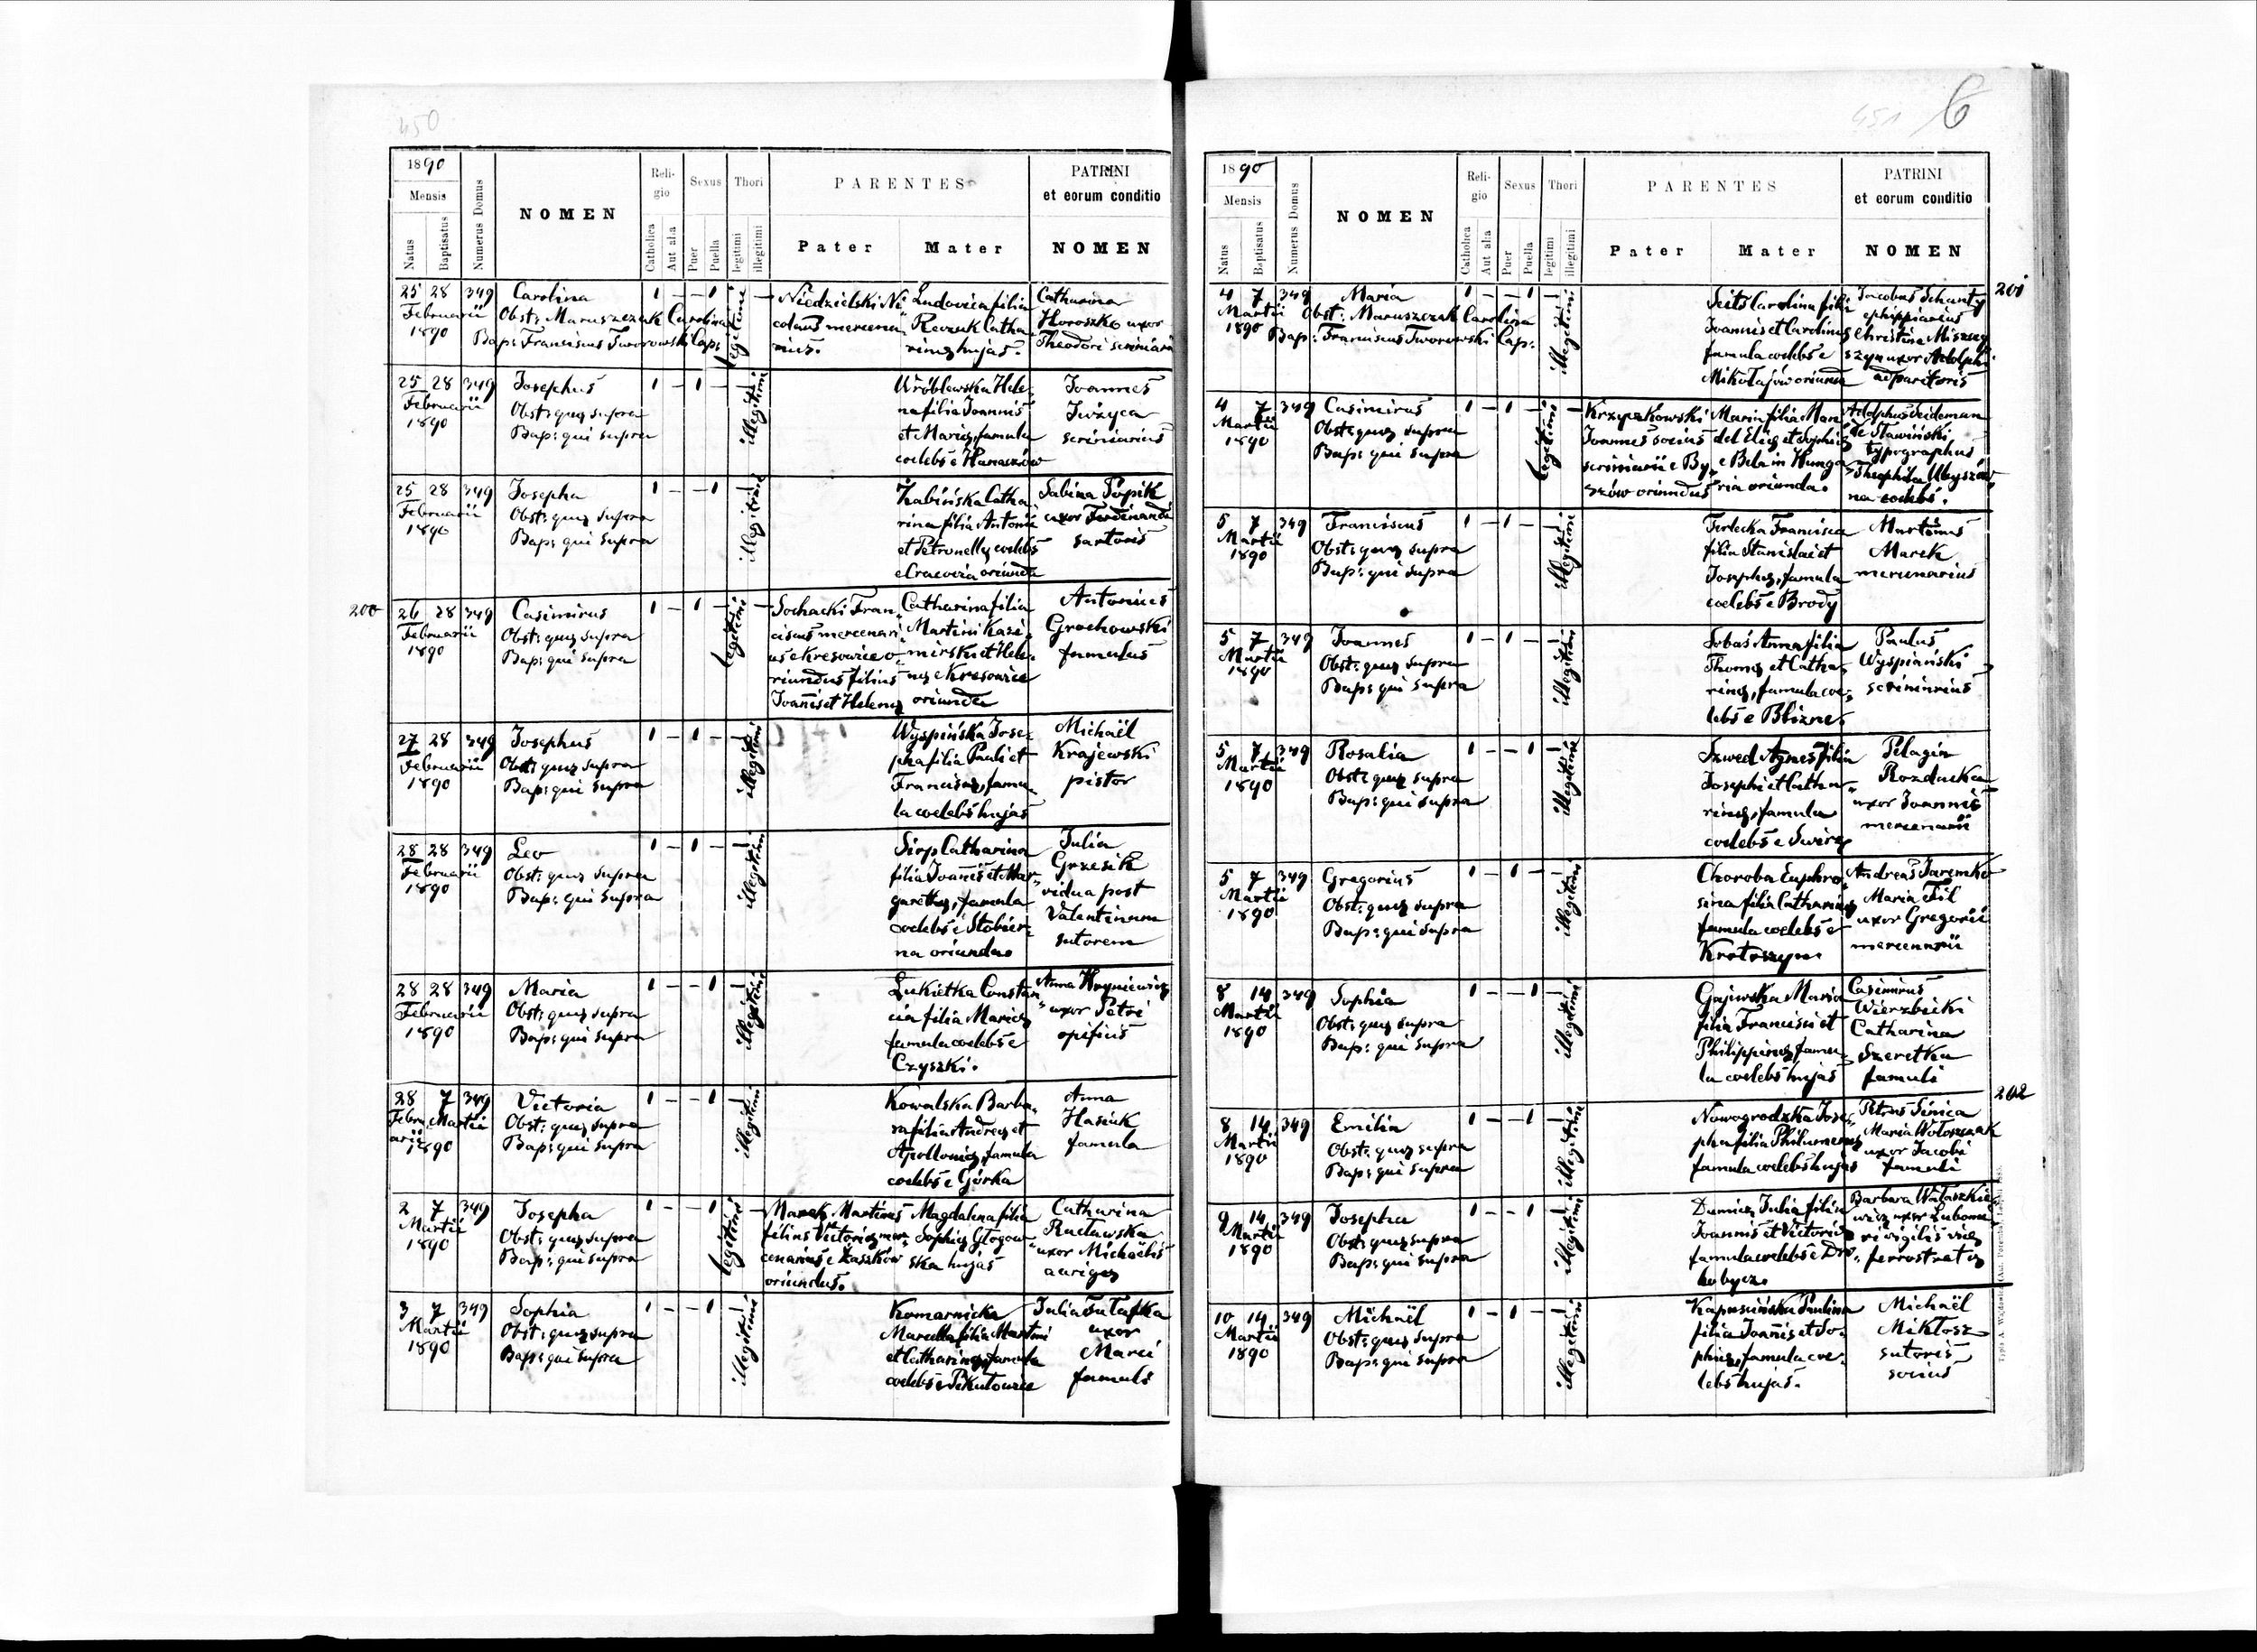 450
1890
Mensis
Natus
Baptisatus
Numerus Domus
NOMEN
Religio
Catholica
Aut alia
Sexus
Puer
Puella
Thori
legitimi
illegitimi
PARENTES
Pater
Mater
PATRINI
et eorum conditio
NOMEN
25 28 349 Carolina 1 – – 1 legitimi – Niedzielski Ni- Ludovica filia Catharina
Februarii Obst: Maruszczak Carolina colaus mercena- Reczuk Catha- Horoszko uxor
1890 Bap: Franciscus Tworowski Cap: rius. rinę hujas. Theodori scriniarii
25 28 349 Josephus 1 – 1 – illegitimi Wróblewska Hele-
Februarii Obst: quę supra na filia Joannis
1890 Bap: qui supra et Marię, famula
coelebs e Hanaczów
Joannes
Iwżyca
scriniarius
25 28 349 Josepha 1 – – 1 illegitimi Żabińska Catha-
Februarii Obst: quę supra rina filia Antonii
1890 Bap: qui supra et Petronellę coelebs
e Cracovia oriunda
Sabina Popik
uxor Ferdinandi
sartoris
200
26 28 349 Casimirus 1 – 1 – legitimi –
Februarii Obst: quę supra
1890 Bap: qui supra
Sochacki Fran-
ciscus mercenari-
us e Kresowice o-
riundus filius
Joannis et Helenę
Catharina filia
Martini Kazi-
mirski et Hele-
nę e Kresowice
oriunda
Antonius
Grochowski
famulus
27 28 349 Josephus 1 – 1 – illegitimi
Februarii Obst: quę supra
1890 Bap: qui supra
Wyspińska Jose-
pha filia Pauli et
Franciscę, famu-
la coelebs hujas
Michaël
Krajewski
pistor
28 28 349 Leo 1 – 1 – illegitimi
Februarii Obst: quę supra
1890 Bap: qui supra
Sirp Catharina
filia Joannis et Mar-
garethę, famula
coelebs e Stobier-
na oriunda
Julia
Grzesik
vidua post
Valentinum
sutorem
28 28 349 Maria 1 – – 1 illegitimi
Februarii Obst: quę supra
1890 Bap: qui supra
Lukietka Constan-
cia filia Marię
famula coelebs e
Czyszki.
Anna Hryniewicz
uxor Petri
opificis
28 7 349 Victoria 1 – – 1 illegitimi
Febru- Martii Obst: quę supra
arii 1890 Bap: qui supra
Kowalska Barba-
ra filia Andreę et
Apollonię, famula
coelebs e Górka
Anna
Hasiuk
famula
2 7 349 Josepha 1 – – 1 legitimi
Martii Obst: quę supra
1890 Bap: qui supra
Marek Martinus
filius Victorię mer-
cenarius e Zaszków
oriundus.
Magdalena filia
Sophię Głogow-
ska hujas
Catharina
Racławska
uxor Michaëlis
aurigę
3 7 349 Sophia 1 – – 1 illegitimi
Martii Obst: quę supra
1890 Bap: qui supra
Komarnicka
Marcella filia Martini
et Catharinę, famula
coelebs e Pikutowice
Julia Tutajka
uxor
Marci
famuli
451 6
1890
Mensis
Natus
Baptisatus
Numerus Domus
NOMEN
Religio
Catholica
Aut alia
Sexus
Puer
Puella
Thori
legitimi
illegitimi
PARENTES
Pater
Mater
PATRINI
et eorum conditio
NOMEN
201
4 7 349 Maria 1 – – 1 illegitimi
Martii Obst: Maruszczak Carolina
1890 Bap: Franciscus Tworowski Cap:
Seits Carolina filia
Joannis et Carolinę
famula coelebs e
Mikołajów oriunda
Jacobus Schanty
ephippiarius
Christina
uxor Adolphi
adparitoris
4 7 349 Casimirus 1 – 1 – legitimi –
Martii Obst: quę supra
1890 Bap: qui supra
Krzyżkowski
Joannes socius
scriniarii e By-
szów oriundus
Maria filia Man-
del Elię et Sophię
e Bela in Hunga-
ria oriunda.
Adolphus Seideman
de Sławiński
typographus
Theophila
na coelebs.
5 7 349 Franciscus 1 – 1 – illegitimi
Martii Obst: quę supra
1890 Bap: qui supra
Terlecka Francisca
filia Stanislai et
Josephę, famula
coelebs e Brody
Martinus
Marek
mercenarius
5 7 349 Joannes 1 – 1 – illegitimi
Martii Obst: quę supra
1890 Bap: qui supra
Sobaś Anna filia
Thomę et Catha-
rinę, famula coe-
lebs e Blizne.
Paulus
Wyspiański
scriniarius
5 7 349 Rosalia 1 – – 1 illegitimi
Martii Obst: quę supra
1890 Bap: qui supra
Szwed Agnes filia
Josephi et Catha-
rinę, famula
coelebs e Swirz
Pelagia
Rozducka
uxor Joannis
mercenarii
5 7 349 Gregorius 1 – 1 – illegitimi
Martii Obst: quę supra
1890 Bap: qui supra
Choroba Euphro-
sina filia Catharinę
famula coelebs e
Krotoszyn.
Andreas Jaremko
Maria Fil
uxor Gregorii
mercenarii
8 14 349 Sophia 1 – – 1 illegitimi
Martii Obst: quę supra
1890 Bap: qui supra
Gajewska Maria
filia Francisci et
Philippinę, famu-
la coelebs hujas
Casimirus
Wierzbicki
Catharina
Szeretka
famuli
202
8 14 349 Emilia 1 – – 1 illegitimi
Martii Obst: quę supra
1890 Bap: qui supra
Nowogrodzka Jose-
pha filia Philumenę
famula coelebs hujas
Petrus Sinica
Maria Wołoszczak
uxor Jacobi
famuli
9 14 349 Josepha 1 – – 1 illegitimi
Martii Obst: quę supra
1890 Bap: qui supra
Dumicz Julia filia
Joannis et Victorię
famula coelebs e Dro-
hobycz.
Barbara Wałaszkie-
wicz uxor Lubome-
ri vigilis vię
ferrostratę
10 14 349 Michaël 1 – 1 – illegitimi
Martii Obst: quę supra
1890 Bap: qui supra
Kapuscińska Paulina
filia Joannis et So-
phię, famula coe-
lebs hujas.
Michaël
Miklosz
sutoris
socius